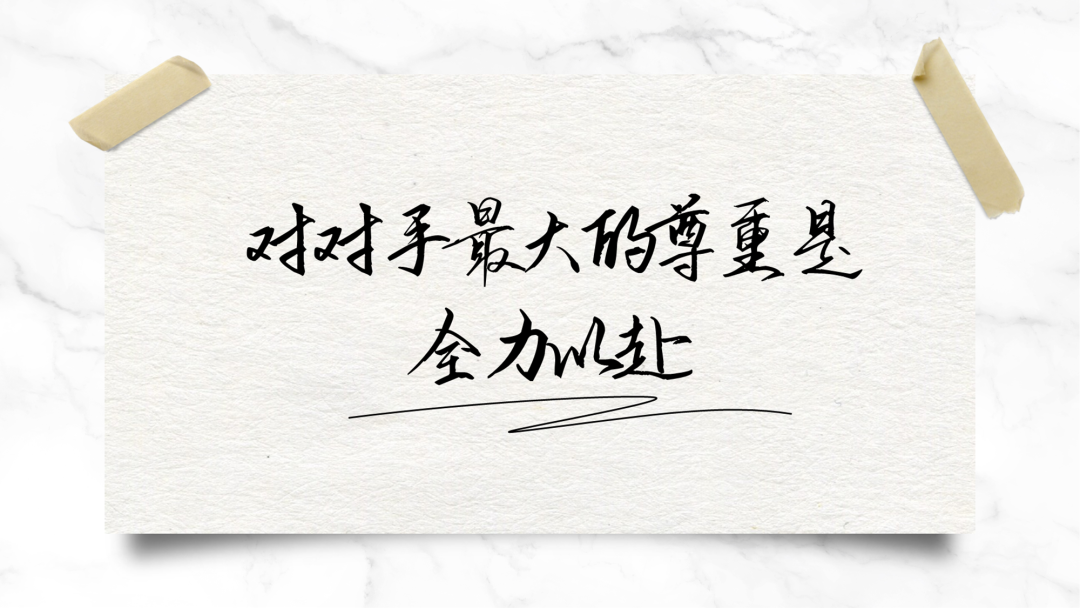 对对手最大的尊重是
全力以赴